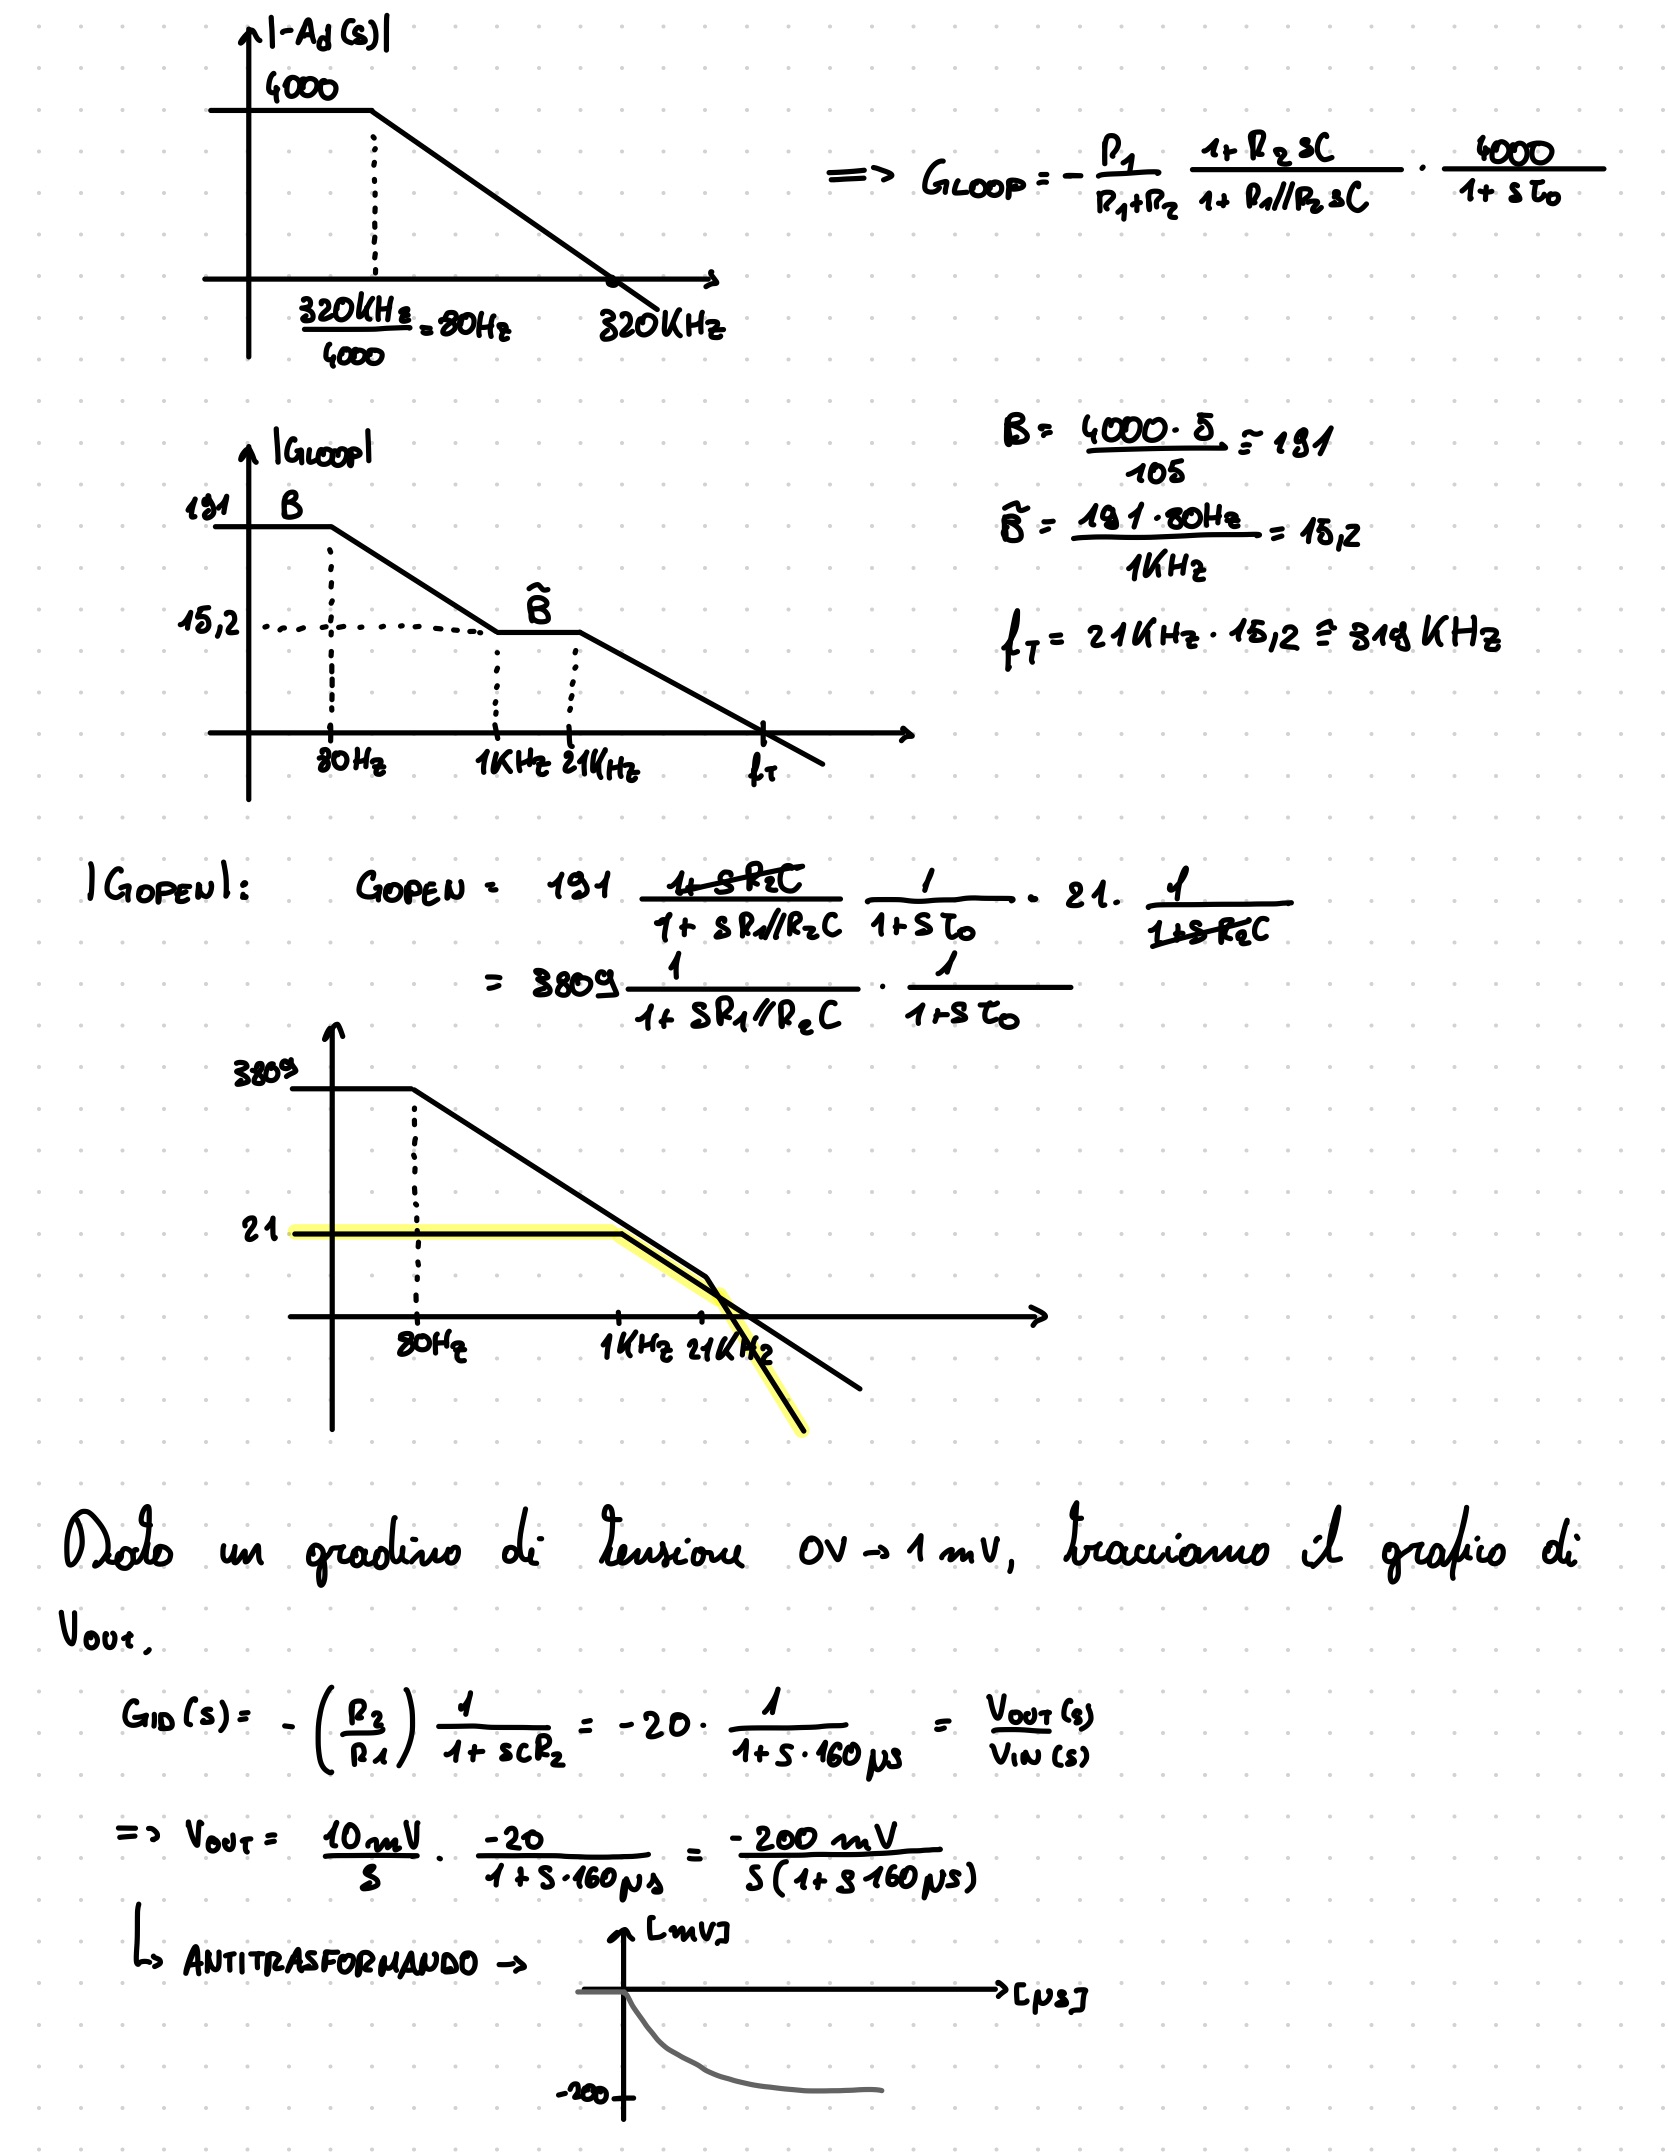 |-Ad(s)|
4000
320KHz/4000 = 80Hz
320KHz
=> GLOOP = - R1/(R1+R2) (1+R2sC)/(1+R1//R2sC) · 4000/(1+sτ0)
|GLOOP|
191 B
15,2 B̃
80Hz 1KHz 21KHz fT
B = 4000·5/105 ≅ 191
B̃ = 191·80Hz/1KHz = 15,2
fT = 21KHz · 15,2 ≅ 319KHz
|GOPEN|: GOPEN = 191 (1+sR2C)/(1+sR1//R2C) 1/(1+sτ0) · 21 · 1/(1+sR2C)
= 3809 1/(1+sR1//R2C) · 1/(1+sτ0)
3809
21
80Hz 1KHz 21KHz
Dato un gradino di tensione 0V→1mV, tracciamo il grafico di
VOUT.
GID(s) = -(R2/R1) 1/(1+sCR2) = -20 · 1/(1+s·160μs) = VOUT(s)/VIN(s)
=> VOUT = 10mV/s · -20/(1+s·160μs) = -200mV/(s(1+s160μs))
↳ ANTITRASFORMANDO →
[mV]
[μs]
-200